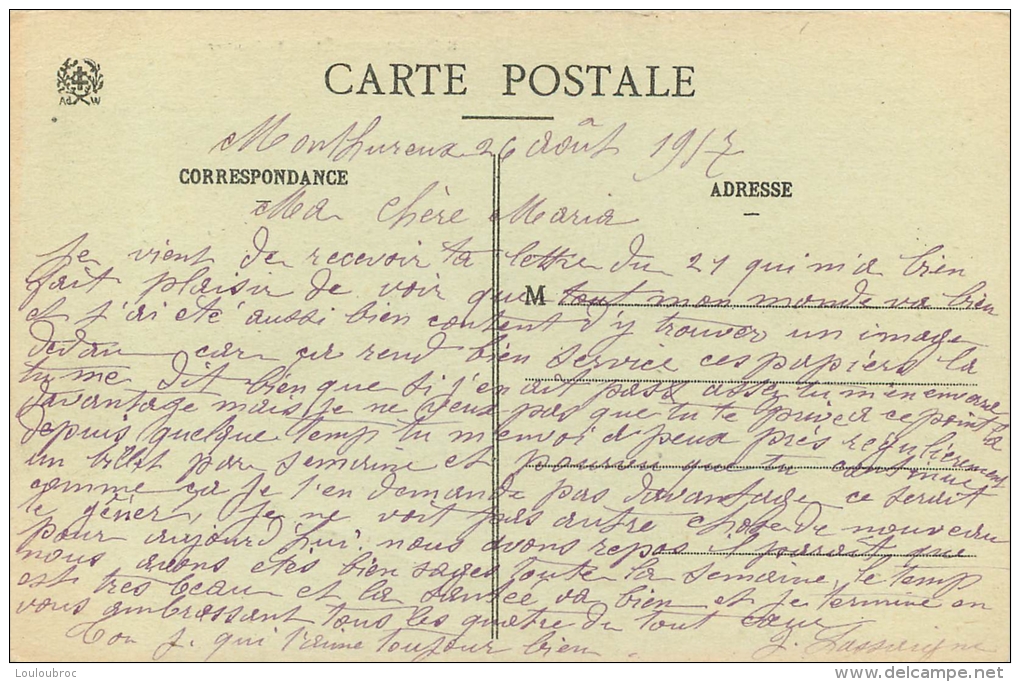 CARTE POSTALE
Ad W
Monthureux 26 août 1917
CORRESPONDANCE
ADRESSE
Ma chère Maria
Je vient de recevoir ta lettre du 21 qui m'a bien
fait plaisir de voir que tout mon monde va bien
M
et j'ai été aussi bien content d'y trouver un image
dedan car ça rend bien service ces papiers la
tu me dit bien que si j'en ait pass assez tu m'en envoie
davantage mais je ne veux pas que tu te prive a ce point la
depuis quelque temp tu m'envoi a peux près regulièrement
un billet par semaine et pourvu que tu continue
comme ça je t'en demande pas davantage ce serait
te gêner, je ne voit pas autre chose de nouveau
pour aujourd'hui. nous avons repos il parait que
nous avons étés bien sages toute la semaine, le temp
est très beau et la santée va bien et je termine en
vous ambrassant tous les quatre du tout cœur
Ton J. qui t'aime toujour bien.
J. Lassaigne
Louloubroc
www.delcampe.net